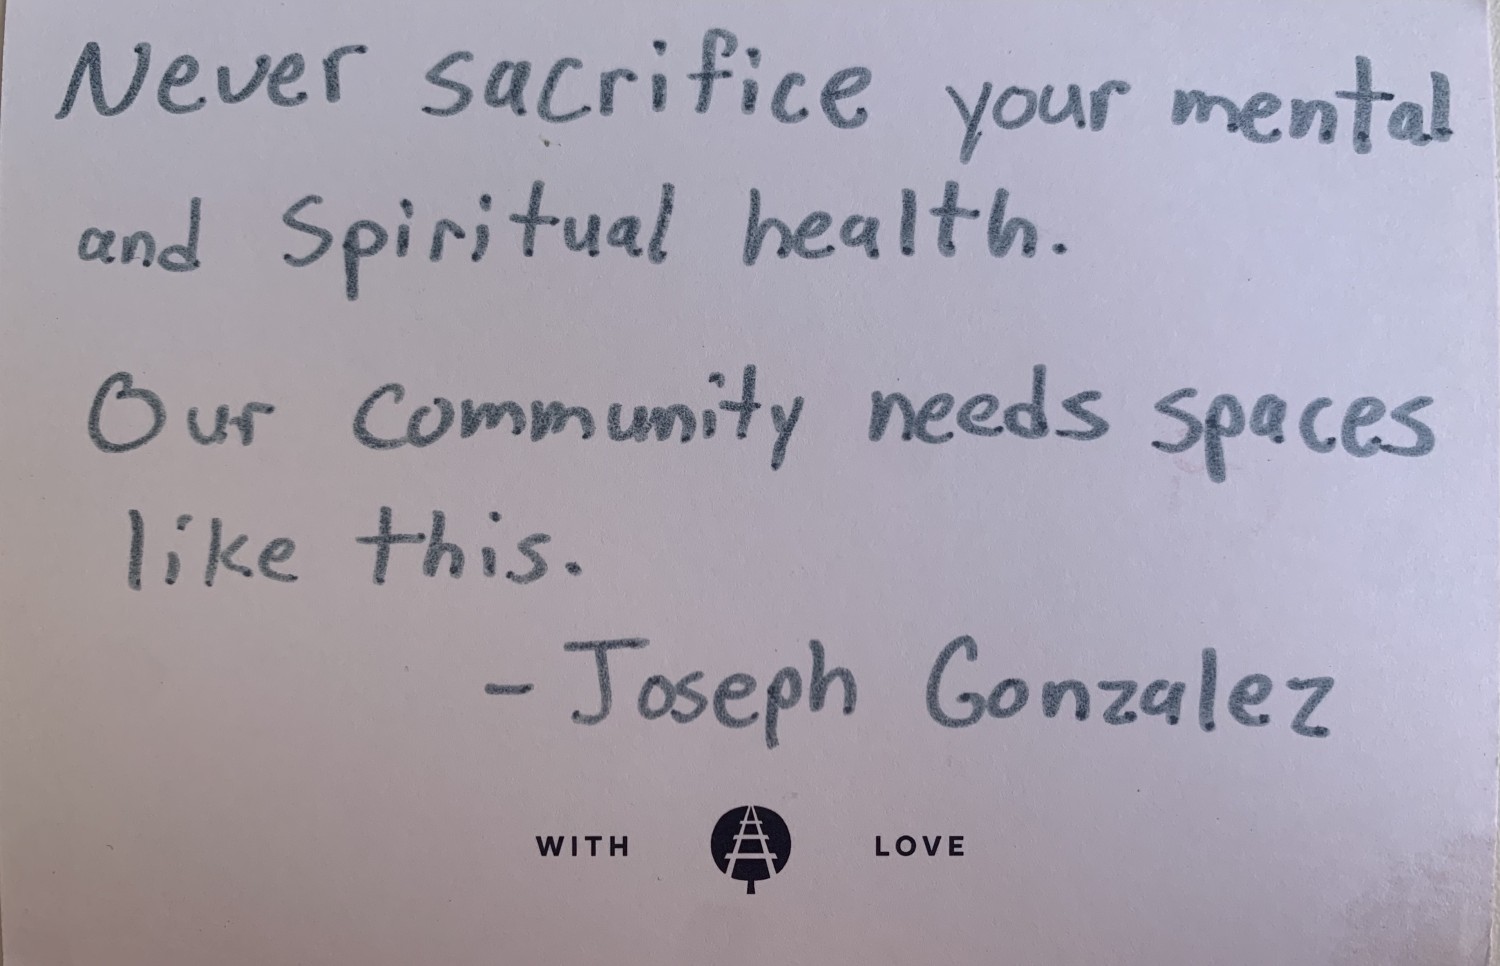 Never sacrifice your mental
and Spiritual health.
Our Community needs spaces
like this.
- Joseph Gonzalez
WITH LOVE